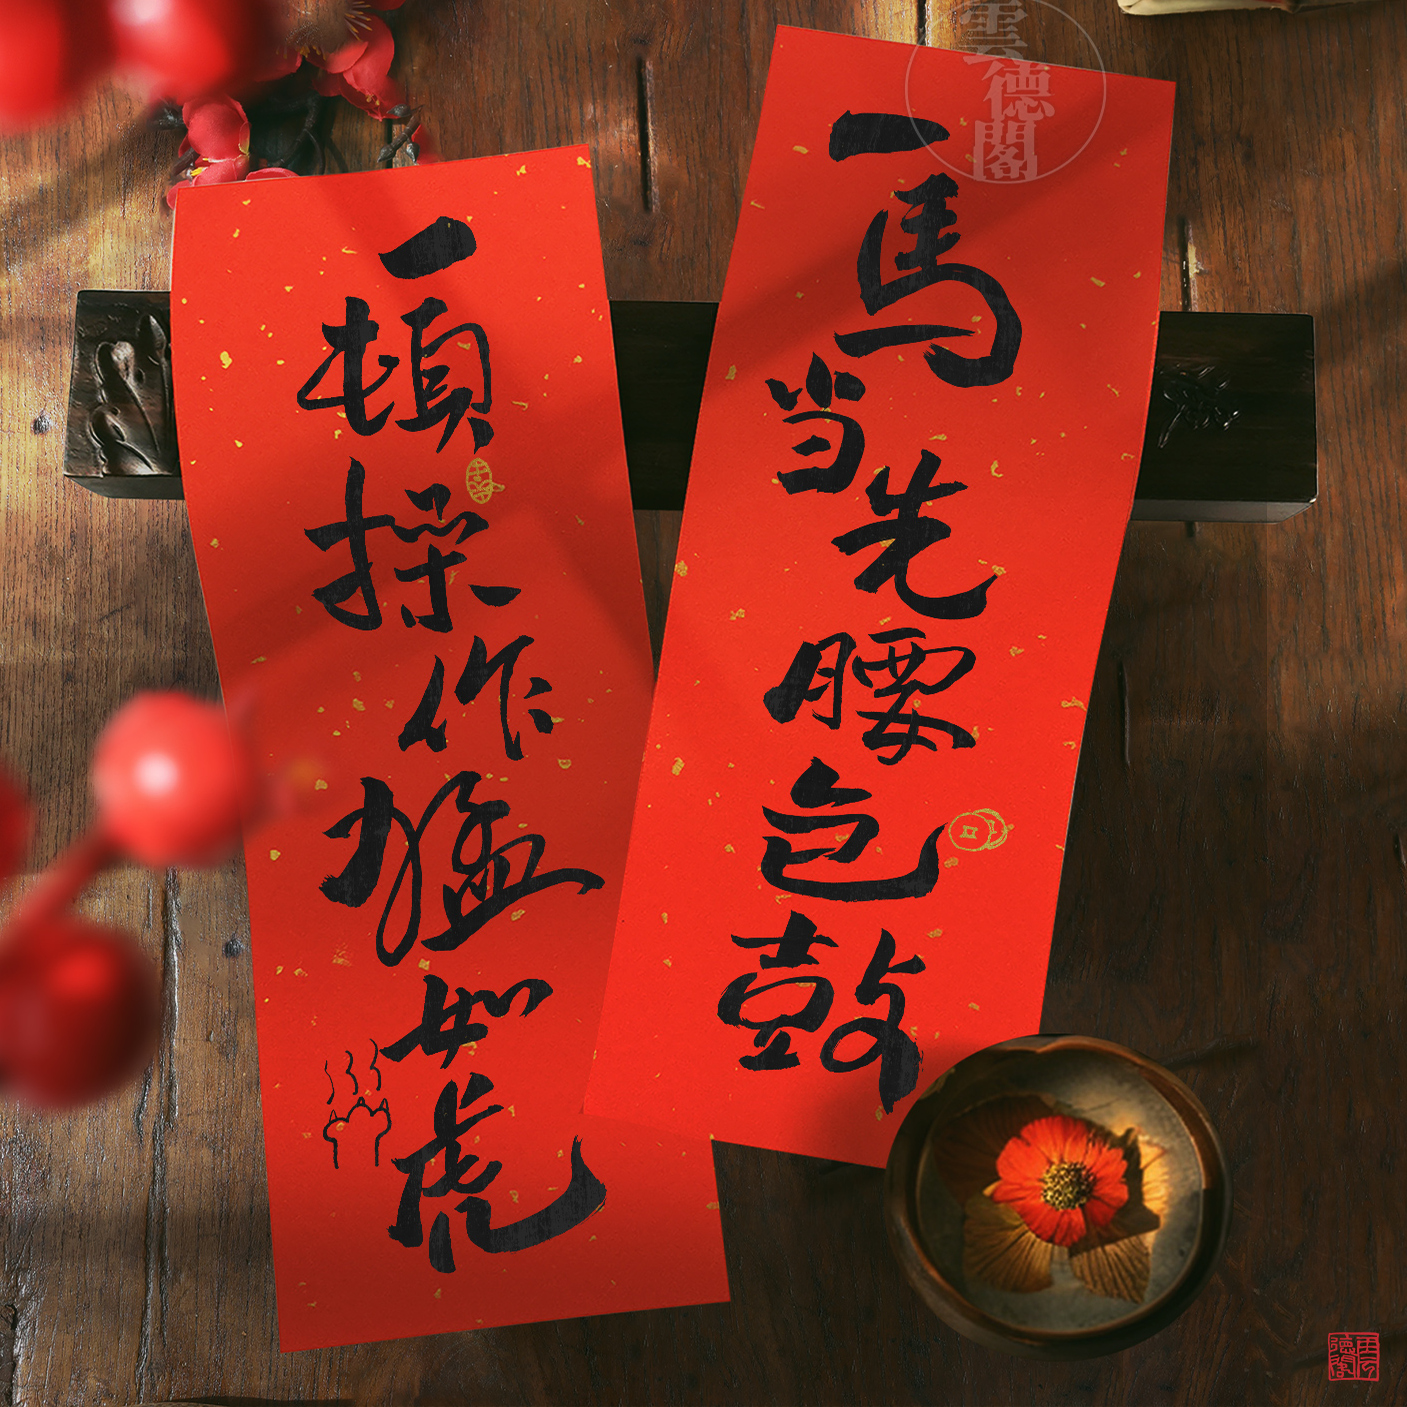 一马当先腰包鼓
一顿操作猛如虎
雲德閣